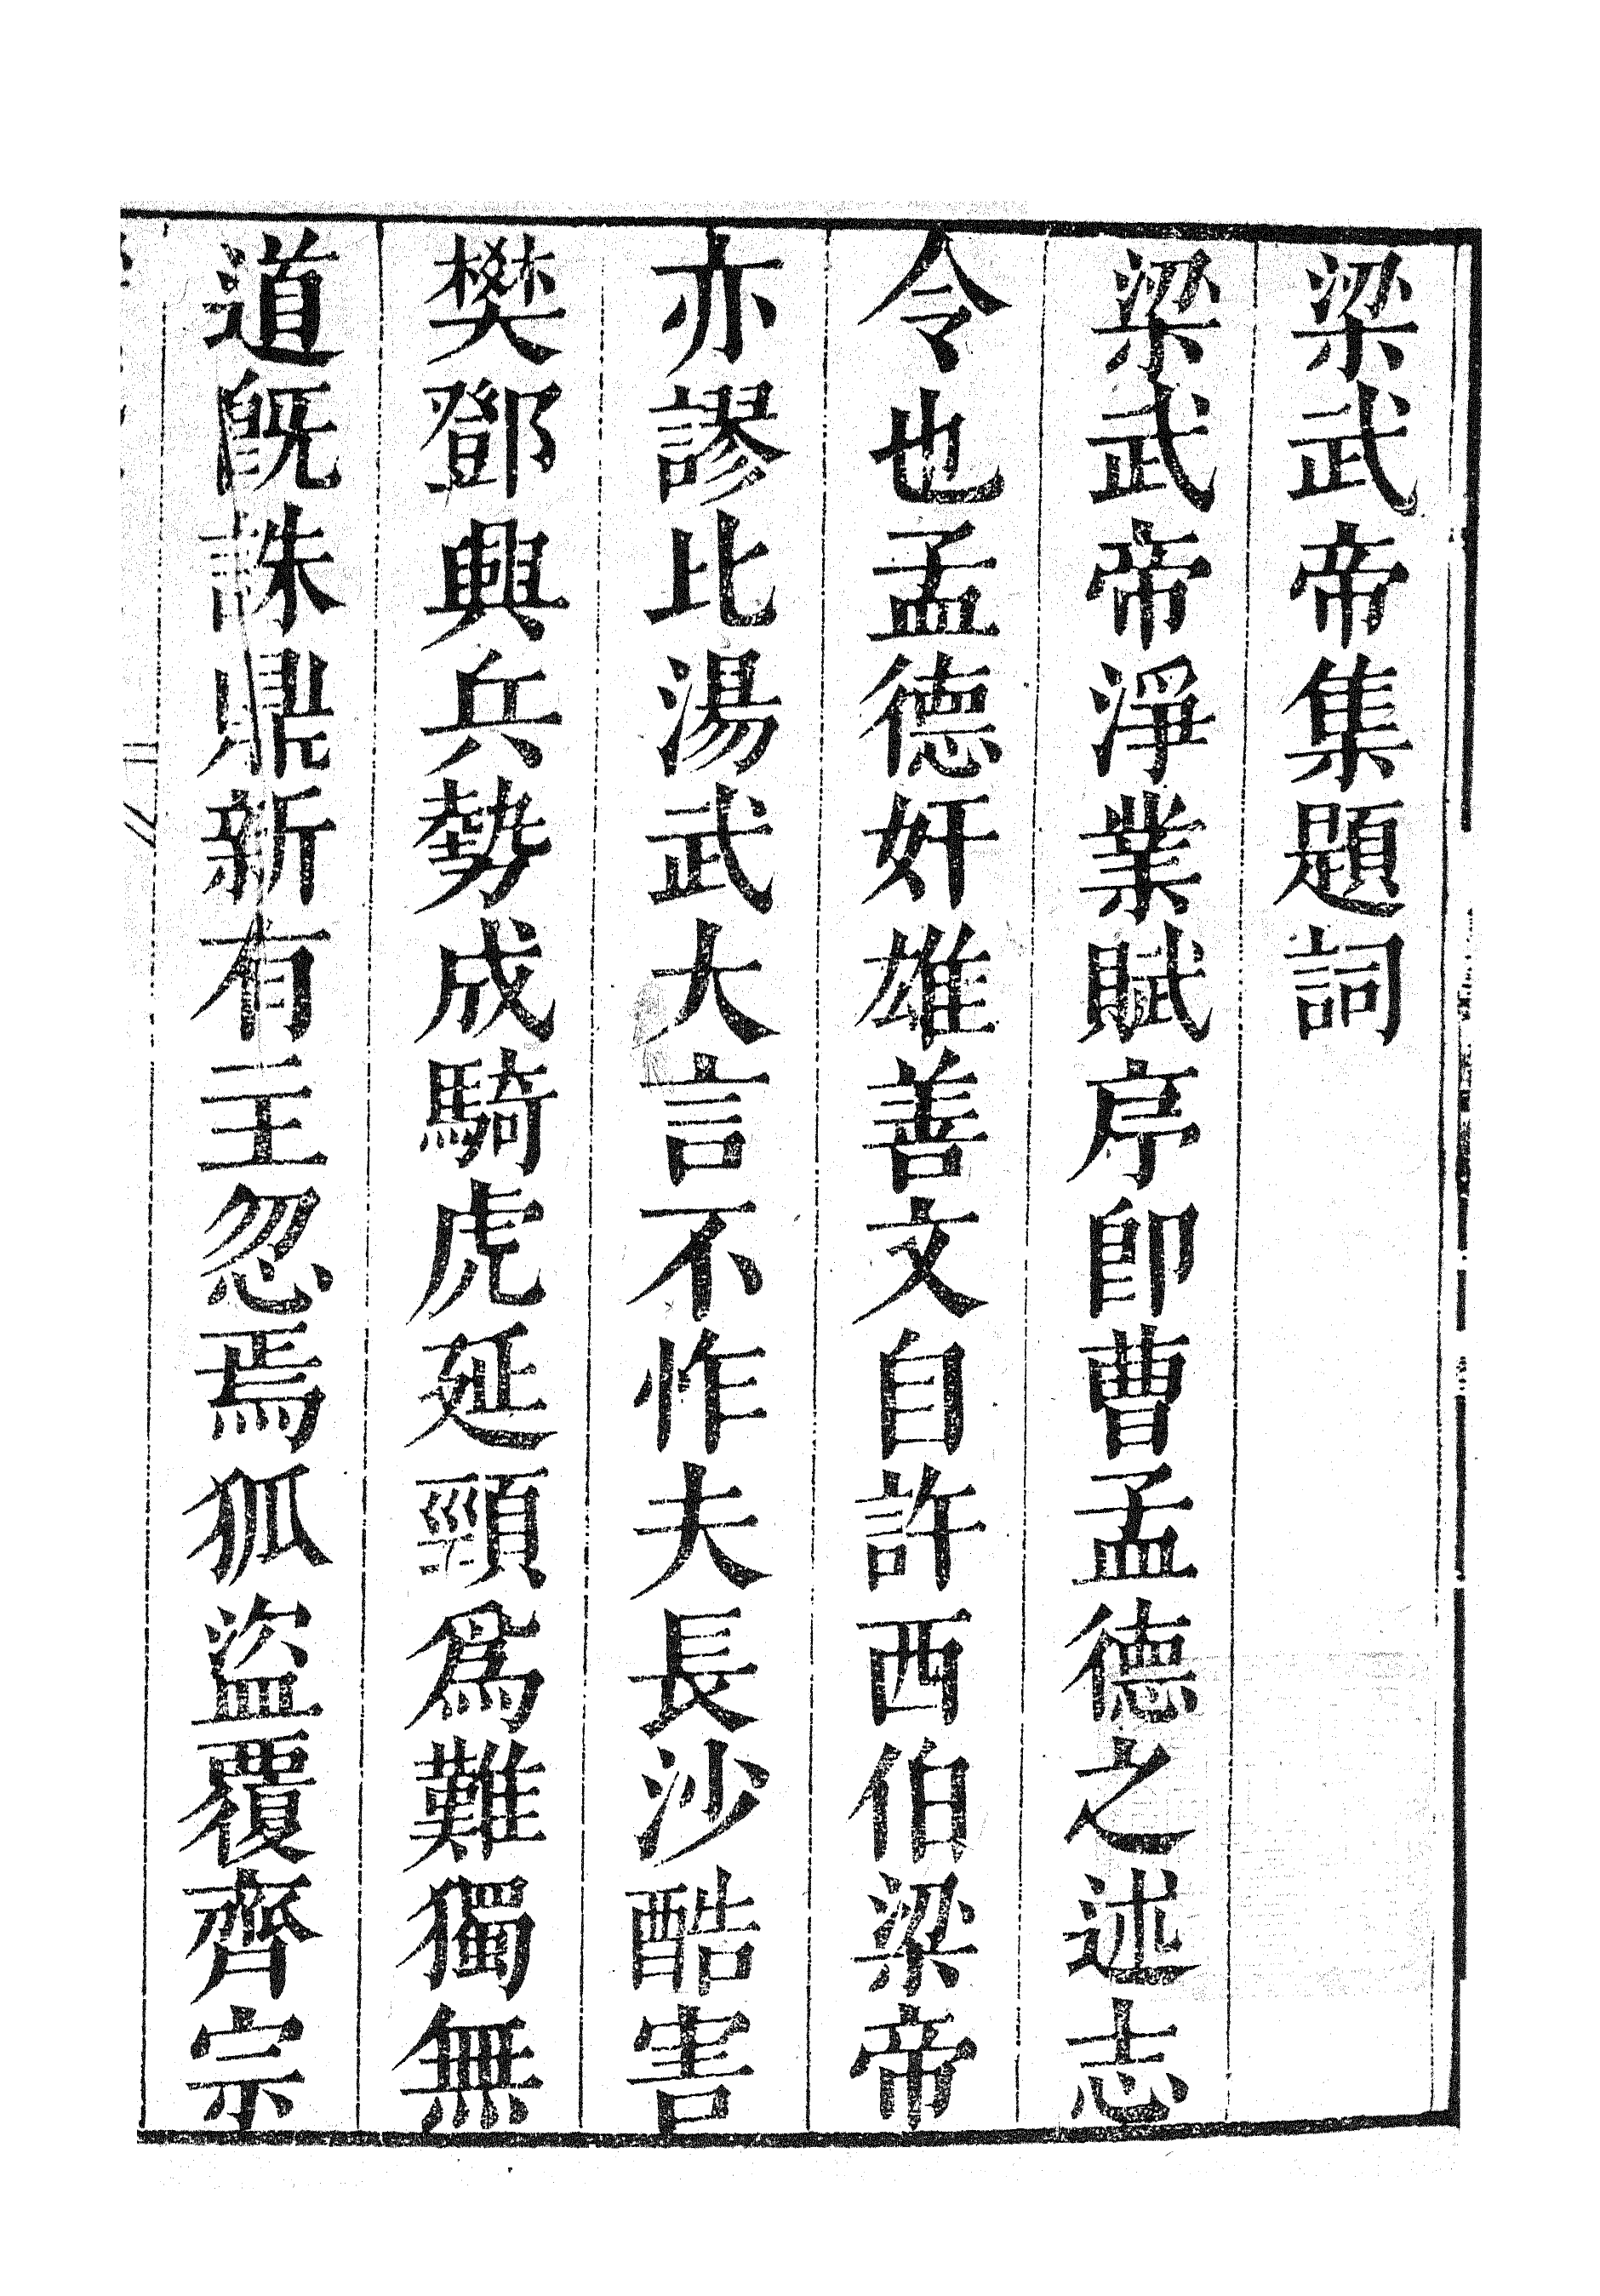 梁武帝集題詞
梁武帝淨業賦序卽曹孟德之述志
令也孟德奸雄善文自許西伯梁帝
亦謬比湯武大言不怍夫長沙酷害
樊鄧興兵勢成騎虎延頸爲難獨無
道旣誅鼎新有主忽焉狐盜覆齊宗